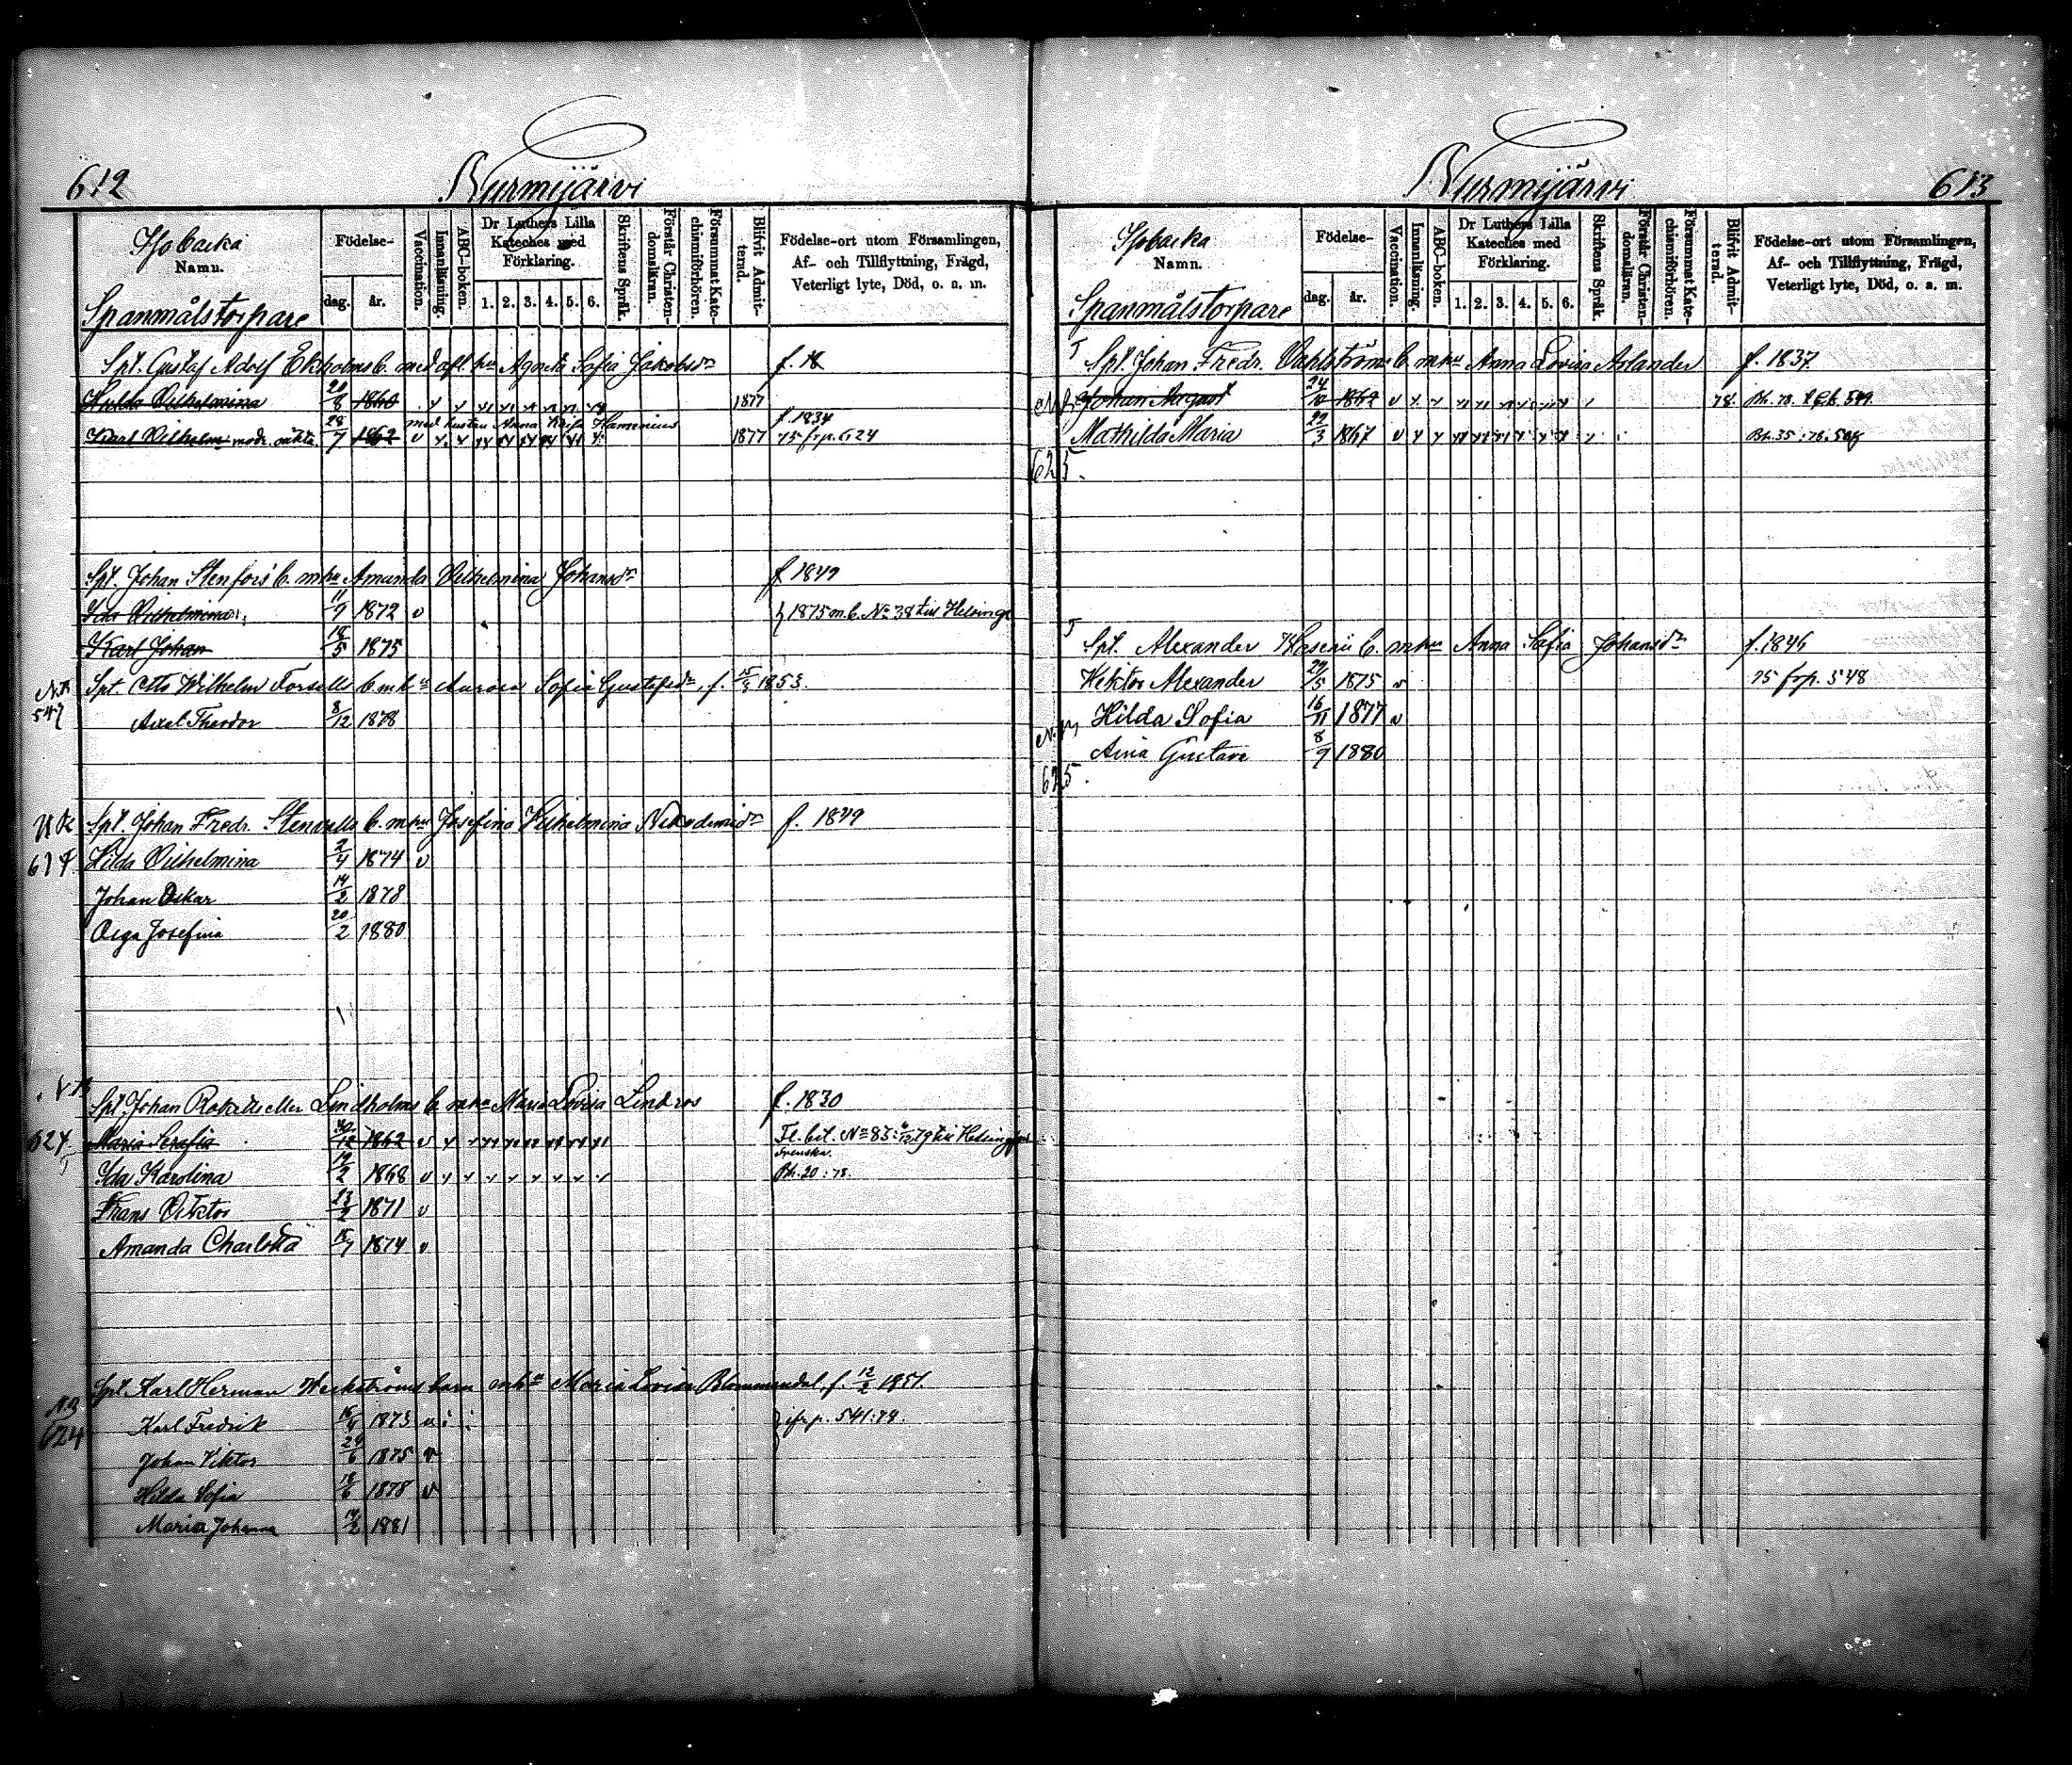 612
Nurmijärvi
Isobacka
Namn.
Spanmålstorpare
Födelse-
dag.
år.
Vaccination.
Innanläsning.
ABC-boken.
Dr Luthers Lilla
Kateches med
Förklaring.
1. 2. 3. 4. 5. 6.
Skriftens Språk.
Förstår Christen-
domsläran.
Försummat Kate-
chismiförhören.
Blifvit Admit-
terad.
Födelse-ort utom Församlingen,
Af- och Tillflyttning, Frägd,
Veterligt lyte, Död, o. a. m.
Spt. Gustaf Adolf Ekholms b. med afl. hu Agata Sofia Jakobsdr f. 18
Hulda Vilhelmina 20/8 1860 1877
med hustru Anna Kajsa Flaminius f. 1834
Karl Vilhelm 28/7 1862 v 1877 75 frp. 624
Spt. Johan Stenfors' b. mhu Amanda Vilhelmina Johansdr f. 1849
Ida Vilhelmina 11/9 1872 v } 1875 m. b. No 38 till Helsinge
Karl Johan 18/5 1875
NB Spt Otto Wilhelm Forsells b. m hu Aurora Sofia Gustafsdr, f. 15/3 1853.
547 Axel Theodor 8/12 1878
NB Spt. Johan Fredr. Stenvalls b. mhu Josefina Vilhelmina Nikodemidr f. 1849
Hilda Vilhelmina 2/4 1874 v
Johan Oskar 14/2 1878
Olga Josefina 20/2 1880
Spt Johan Rokells eller Lindholms b. mhu Maria Lovisa Lindros f. 1830
624 Maria Serafia 30/12 1862 v Fl. bet. No 83: till Helsingfors
svenska
Ida Karolina 19/2 1868 v Bh. 20:78.
Frans Viktor 23/2 1871 v
Amanda Charlotta 18/7 1874 v
Spt. Karl Herman Weckströms barn m hu Maria Lovisa Blommendal, f. 12/2 1851.
NB
624 Karl Fredrik 15/4 1873 v } ifrp. 541:79.
Johan Viktor 24/6 1875 v
Hilda Sofia 18/6 1878 v
Maria Johanna 14/2 1881
Nurmijärvi
613
Isobacka
Namn.
Spanmålstorpare
Födelse-
dag.
år.
Vaccination.
Innanläsning.
ABC-boken.
Dr Luthers Lilla
Kateches med
Förklaring.
1. 2. 3. 4. 5. 6.
Skriftens Språk.
Förstår Christen-
domsläran.
Försummat Kate-
chismiförhören.
Blifvit Admit-
terad.
Födelse-ort utom Församlingen,
Af- och Tillflyttning, Frägd,
Veterligt lyte, Död, o. a. m.
Spt. Johan Fredr. Vahlströms b. mhu Anna Lovisa Arlander f. 1837
Johan August 24/10 1862 v 78.
Mathilda Maria 29/3 1867 v
625.
Spt. Alexander b. mhu Anna Sofia Johansdr f. 1846
Wiktor Alexander 29/5 1875 v 75 frp. 548
Hilda Sofia 16/11 1877 v
Aina Gustava 8/9 1880
625.